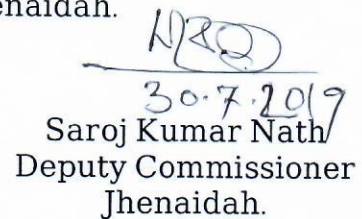 enaidah.
30.7.2019
Saroj Kumar Nath
Deputy Commissioner
Jhenaidah.